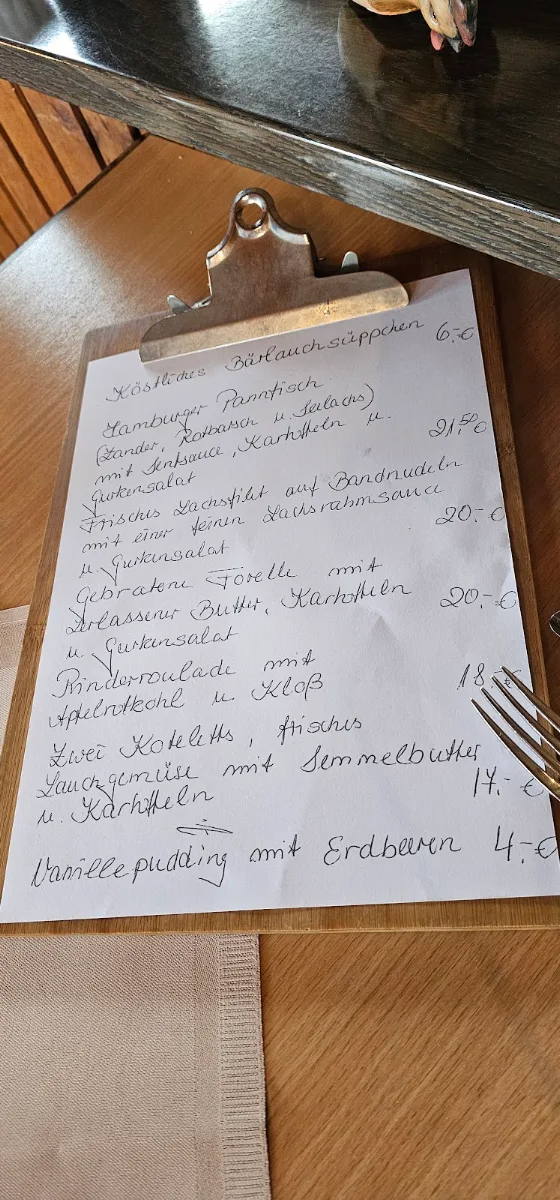 Köstliches Bärlauchsüppchen 6,-€
Hamburger Pannfisch
(Zander, Rotbarsch u. Seelachs)
mit Senfsauce, Kartoffeln u.
Gurkensalat 21,50€
Frisches Lachsfilet auf Bandnudeln
mit einer feinen Lachsrahmsauce
u. Gurkensalat 20,-€
Gebratene Forelle mit
zerlassener Butter, Kartoffeln
u. Gurkensalat 20,-€
Rinderroulade mit
Apfelrotkohl u. Kloß 18,-€
Zwei Koteletts, frisches
Lauchgemüse mit Semmelbutter
u. Kartoffeln 17,-€
Vanillepudding mit Erdbeeren 4,-€